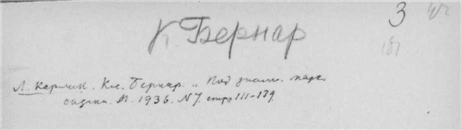 3
К. Бернар
Л. Кермик. Кл. Бернар. „Под знам. марк
сизма. М. 1936. N 7. стр 111-129